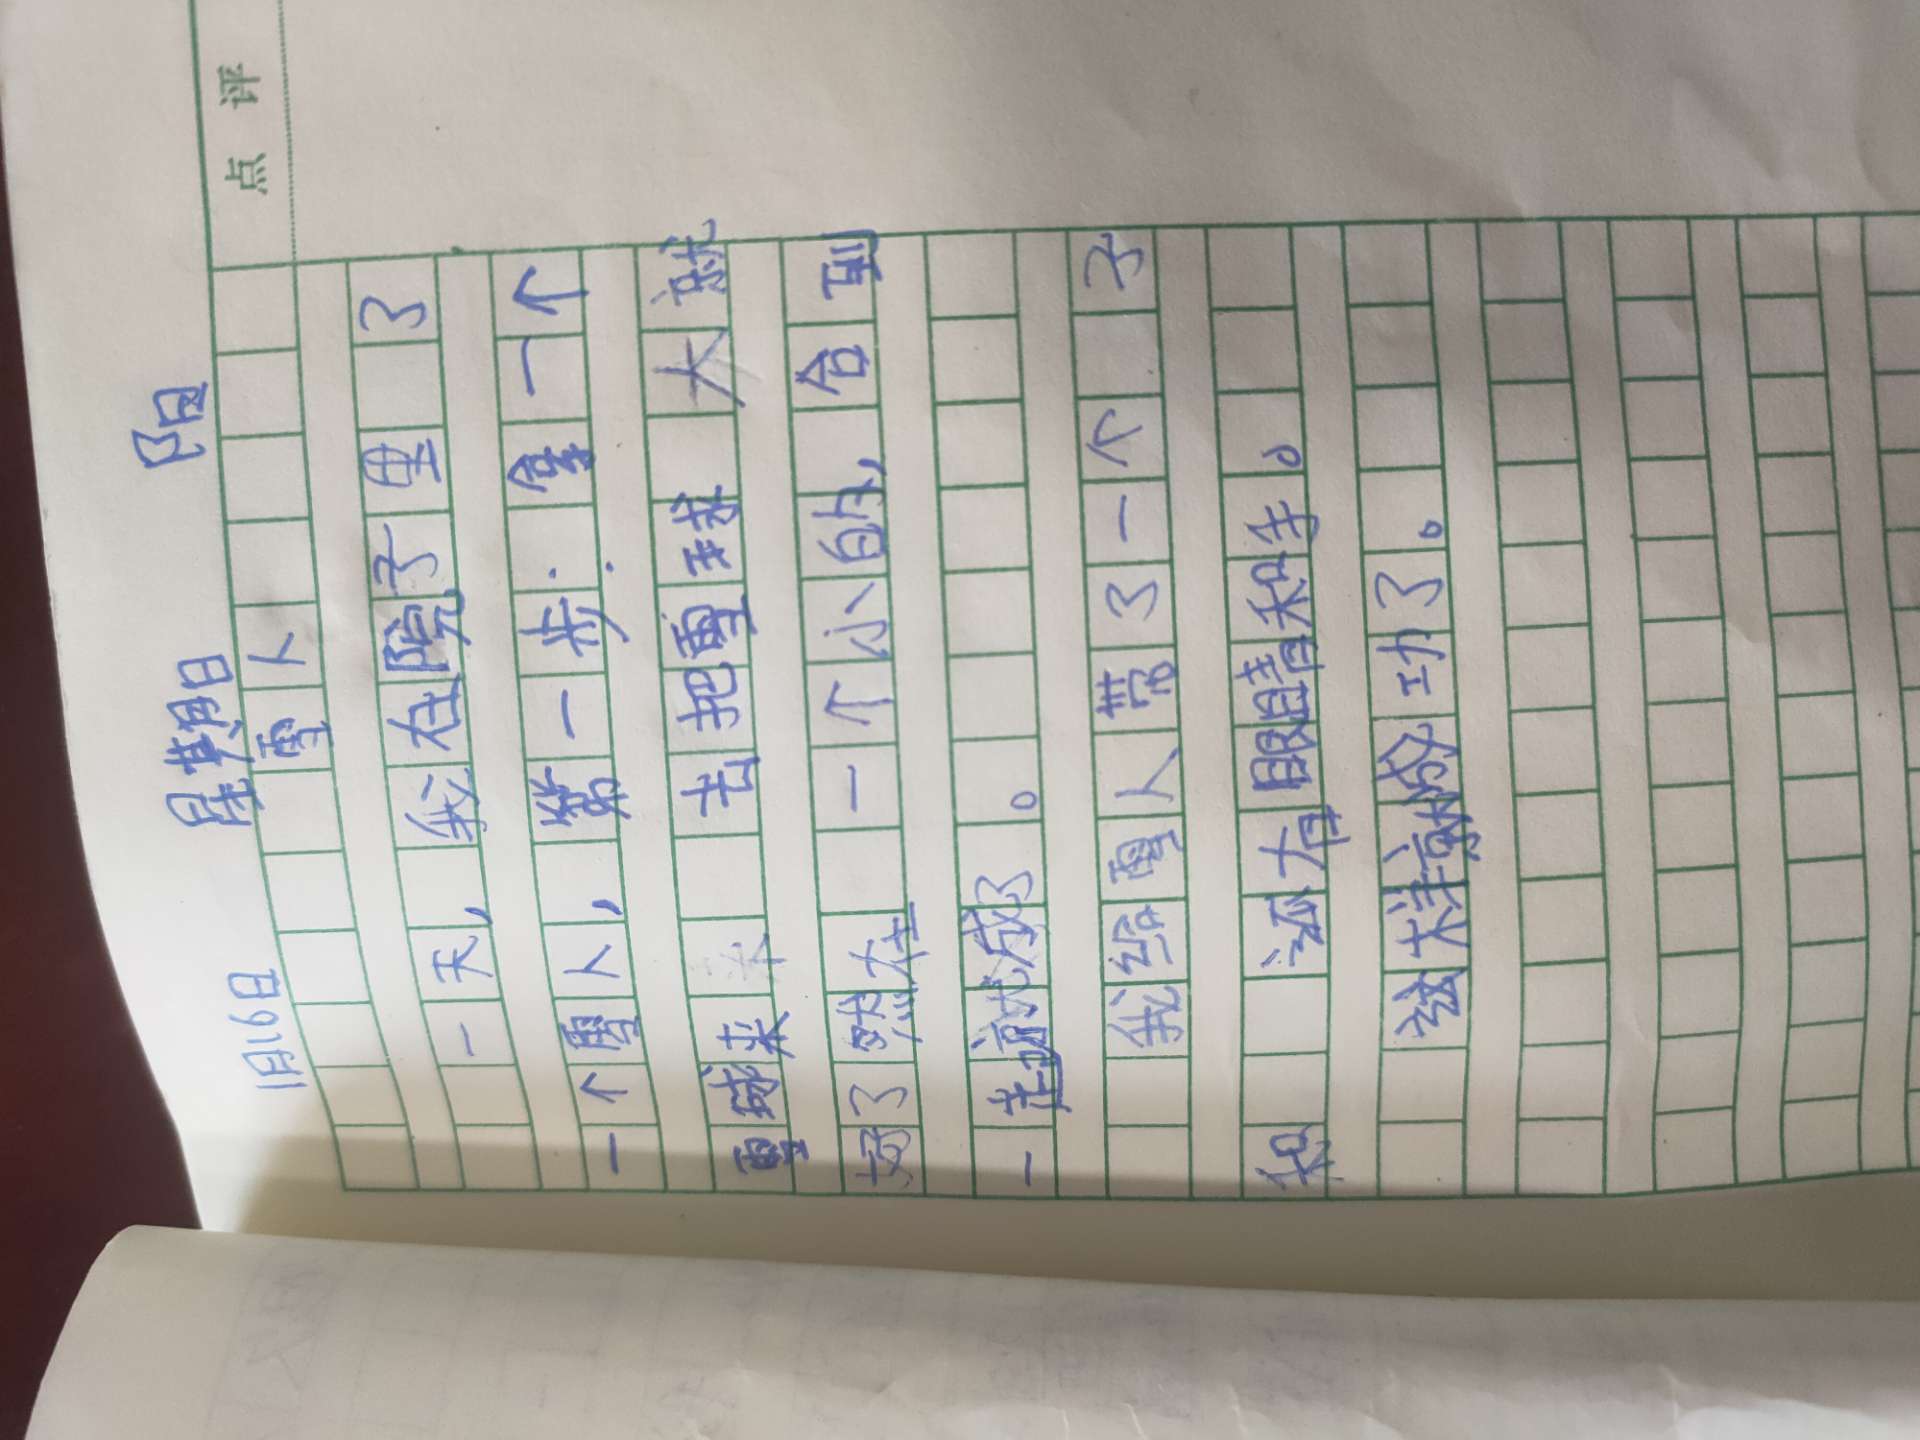 1月19日 星期日 阳
雪人
一天,我在院子里 了
一个雪人,第一步:拿一个
雪球来 去把雪球 大就
好了然在 一个小的,合到
一起就成了。
我给雪人带了一个 子
和 还有眼睛和手。
这样就成功了。
点评